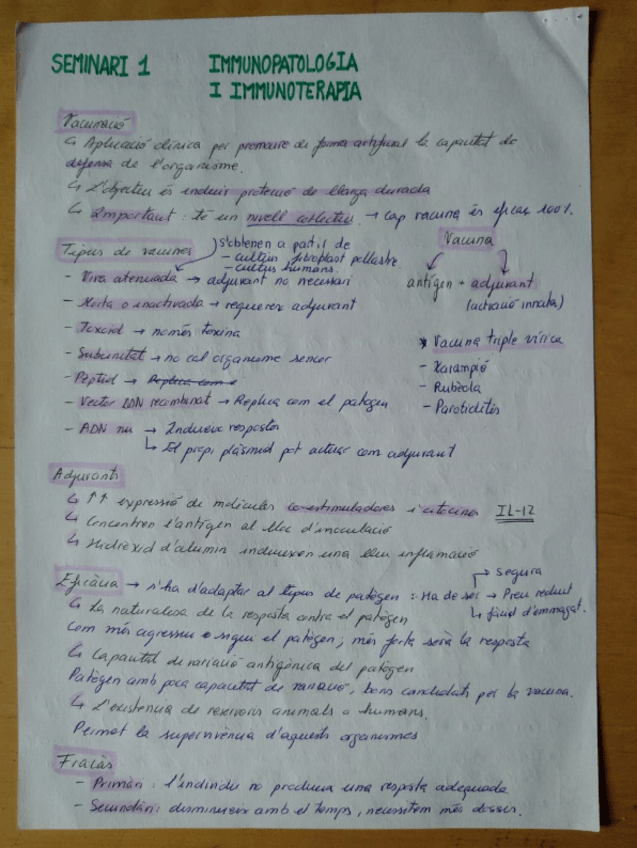 SEMINARI 1 IMMUNOPATOLOGIA
I IMMUNOTERAPIA
Vacunació
↳ Aplicació clínica per promoure de forma artificial la capacitat de
defensa de l'organisme.
↳ L'objectiu és induir protecció de llarga durada
↳ Important: té un nivell col·lectiu. → Cap vacuna és eficaç 100%.
Tipus de vacunes
S'obtenen a partil de
- cultius fibroplast pollastre
- cultius humans.
- Viva atenuada → adjuvant no necessari
- Morta o inactivada → requereix adjuvant
- Toxoid → només toxina
- Subunitat → no cal organisme sencer
- Pèptid → Replica com e
- Vector ADN recombinat → Replica com el patogen
- ADN nu → Indueix respostes
↳ El propi plàsmid pot actuar com adjuvant
Vacuna
antígen + adjuvant
(activació innata)
* Vacuna triple vírica
- Xarampió
- Rubèola
- Parotiditis
Adjuvants
↳ ↑↑ expressió de molècules co-estimuladores i citocines IL-12
↳ Concentren l'antígen al lloc d'inoculació
↳ Hidròxid d'alumini indueixen una lleu inflamació
Eficàcia → s'ha d'adaptar al tipus de patògen : Ha de ser → segura
→ Preu reduït
↳ fàcil d'emmagat.
↳ La naturalesa de la resposta contra el patògen
Com més agressiu sigui el patògen; més forta serà la resposta
↳ Capacitat de variació antigènica del patògen
Patògen amb poca capacitat de variació, bons candidats per la vacuna.
↳ L'existencia de reservoris animals o humans.
Permet la supervivència d'aquests organismes
Fracàs
- Primàri : l'individu no produeix una resposta adequada
- Secundàri: disminueix amb el temps, necessitem més dosis.